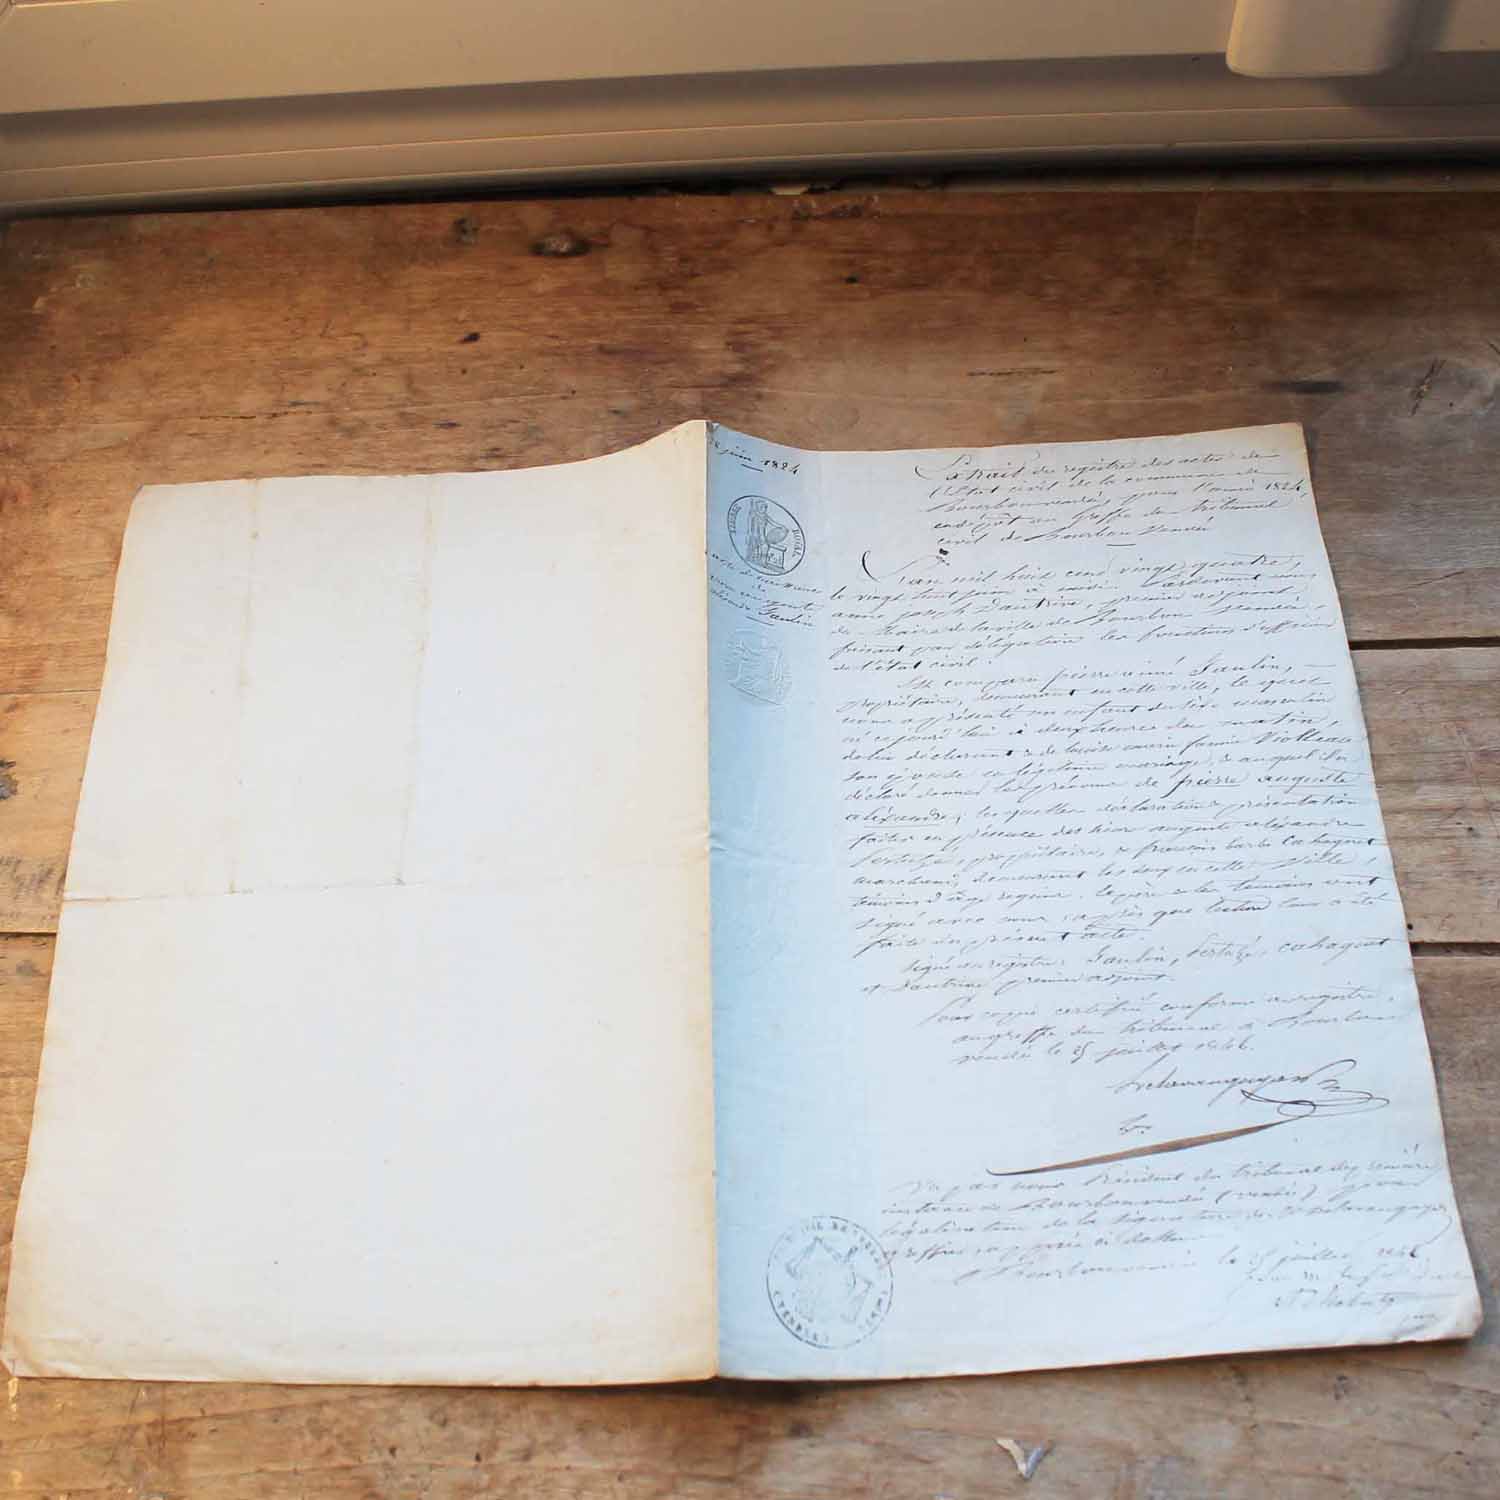 28 juin 1824
TIMBRE ROYAL
acte de naissance
de
Pierre auguste
aléxandre Gaulin
Extrait du registre des actes de
l'État civil de la commune de
Bourbon vendée, pour l'année 1824,
en dépôt au Greffe du tribunal
civil de Bourbon Vendée
L'an mil huit cent vingt quatre,
le vingt huit juin à midi. Pardevant nous
anne joseph Dautrive, premier adjoint
du Maire de la ville de Bourbon Vendée,
faisant par délégation les fonctions d'officier
de l'état civil.
Est comparu pierre aimé Gaulin,
propriétaire, demeurant en cette ville, le quel
nous a présenté un enfant du sèxe masculin
né ce jourd'hui à deux heures du matin,
de lui déclarant & de louise marie fannie Violleau
son épouse en légitime mariage, & auquel il a
déclaré donner les prénoms de pierre auguste
aléxandre; les quelles déclaration & présentation
faites en présence des sieurs auguste aléxandre
propriétaire, & françois barbe Cahaguet
marchand, demeurant les deux en cette Ville,
témoins d'âge requis. Le père & les témoins ont
signé avec nous, après que lecture leur a été
faite du présent acte.
Signé au registre: Gaulin, cahaguet
et Dautrive premier adjoint.
Pour copie certifiée conforme au registre,
au greffe du tribunal à Bourbon
vendée le 25 juillet 1846.
Vu par nous Président du tribunal de première
instance de Bourbon vendée (vendée) pour
légalisation de la signature de
greffier, apposée ci dessus.
à Bourbon vendée le 25 juillet 1846.